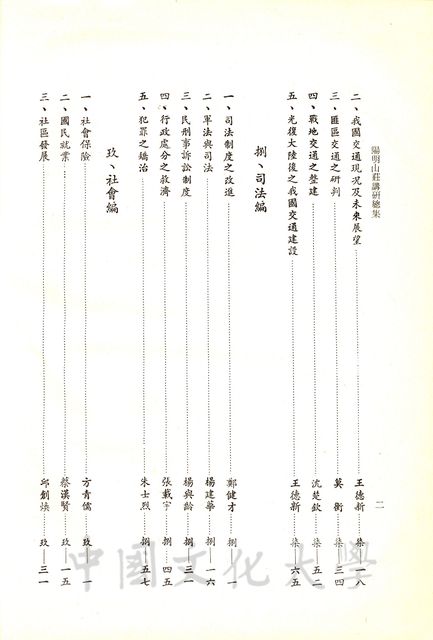 陽明山莊講研總集
二
二、我國交通現況及未來展望……王德新……柒—一八
三、匪區交通之研判……莫衡……柒—三四
四、戰地交通之整建……沈楚欽……柒—五二
五、光復大陸後之我國交通建設……王德新……柒—六五
捌、司法編
一、司法制度之改進……鄭健才……捌—一
二、軍法與司法……楊建華……捌—一六
三、民刑事訴訟制度……楊與齡……捌—三一
四、行政處分之救濟……張載宇……捌—四五
五、犯罪之矯治……朱士烈……捌—五七
玖、社會編
一、社會保險……方青儒……玖—一
二、國民就業……蔡漢賢……玖—一五
三、社區發展……邱創煥……玖—三一
中國文化大學